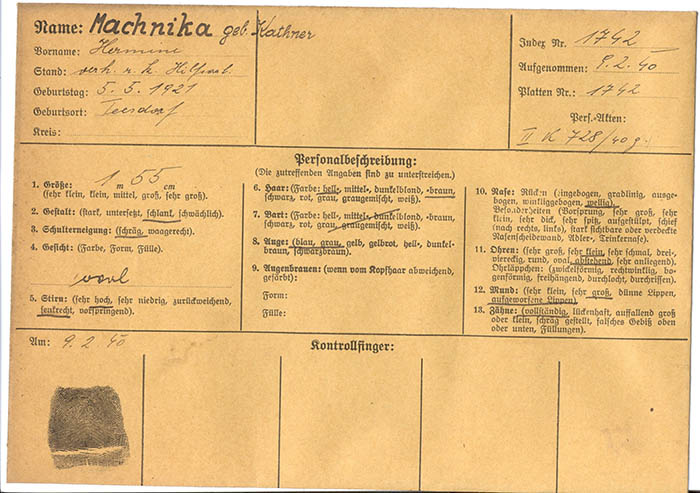 Name: Machnika geb. Kathner
Vorname: Hermine
Stand: verh. r. k. Hilfsarb.
Geburtstag: 5. 5. 1921
Geburtsort: Teesdorf
Kreis:
Index Nr. 1742
Aufgenommen: 9. 2. 40
Platten Nr.: 1742
Pers.-Akten:
II K 728/40 g.
Personalbeschreibung:
(Die zutreffenden Angaben sind zu unterstreichen.)
1. Größe: 1 m 55 cm
(sehr klein, klein, mittel, groß, sehr groß).
2. Gestalt: (stark, untersetzt, schlank, schwächlich).
3. Schulterneigung: (schräg, waagerecht).
4. Gesicht: (Farbe, Form, Fülle).
oval
5. Stirn: (sehr hoch, sehr niedrig, zurückweichend,
senkrecht, vorspringend).
6. Haar: (Farbe: hell-, mittel-, dunkelblond, -braun,
schwarz, rot, grau, graugemischt, weiß).
7. Bart: (Farbe: hell-, mittel-, dunkelblond, -braun,
schwarz, rot, grau, graugemischt, weiß).
8. Auge: (blau, grau, gelb, gelbrot, hell-, dunkel-
braun, schwarzbraun).
9. Augenbrauen: (wenn vom Kopfhaar abweichend,
gefärbt):
Form:
Fülle:
10. Nase: Rücken (eingebogen, gradlinig, ausge-
bogen, winkliggebogen, wellig).
Besonderheiten (Vorsprung, sehr groß, sehr
klein, sehr dick, sehr spitz, aufgestülpt, schief
nach rechts, links), stark sichtbare oder verdeckte
Nasenscheidewand, Adler-, Trinkernase).
11. Ohren: (sehr groß, sehr klein, sehr schmal, drei-
viereckig, rund, oval, abstehend, sehr anliegend).
Ohrläppchen: (zwickelförmig, rechtwinklig, bo-
genförmig, freihängend, durchlocht, durchrissen).
12. Mund: (sehr klein, sehr groß, dünne Lippen,
aufgeworfene Lippen).
13. Zähne: (vollständig, lückenhaft, auffallend groß
oder klein, schräg gestellt, falsches Gebiß oben
oder unten, Füllungen).
Am: 9. 2 40
Kontrollfinger: